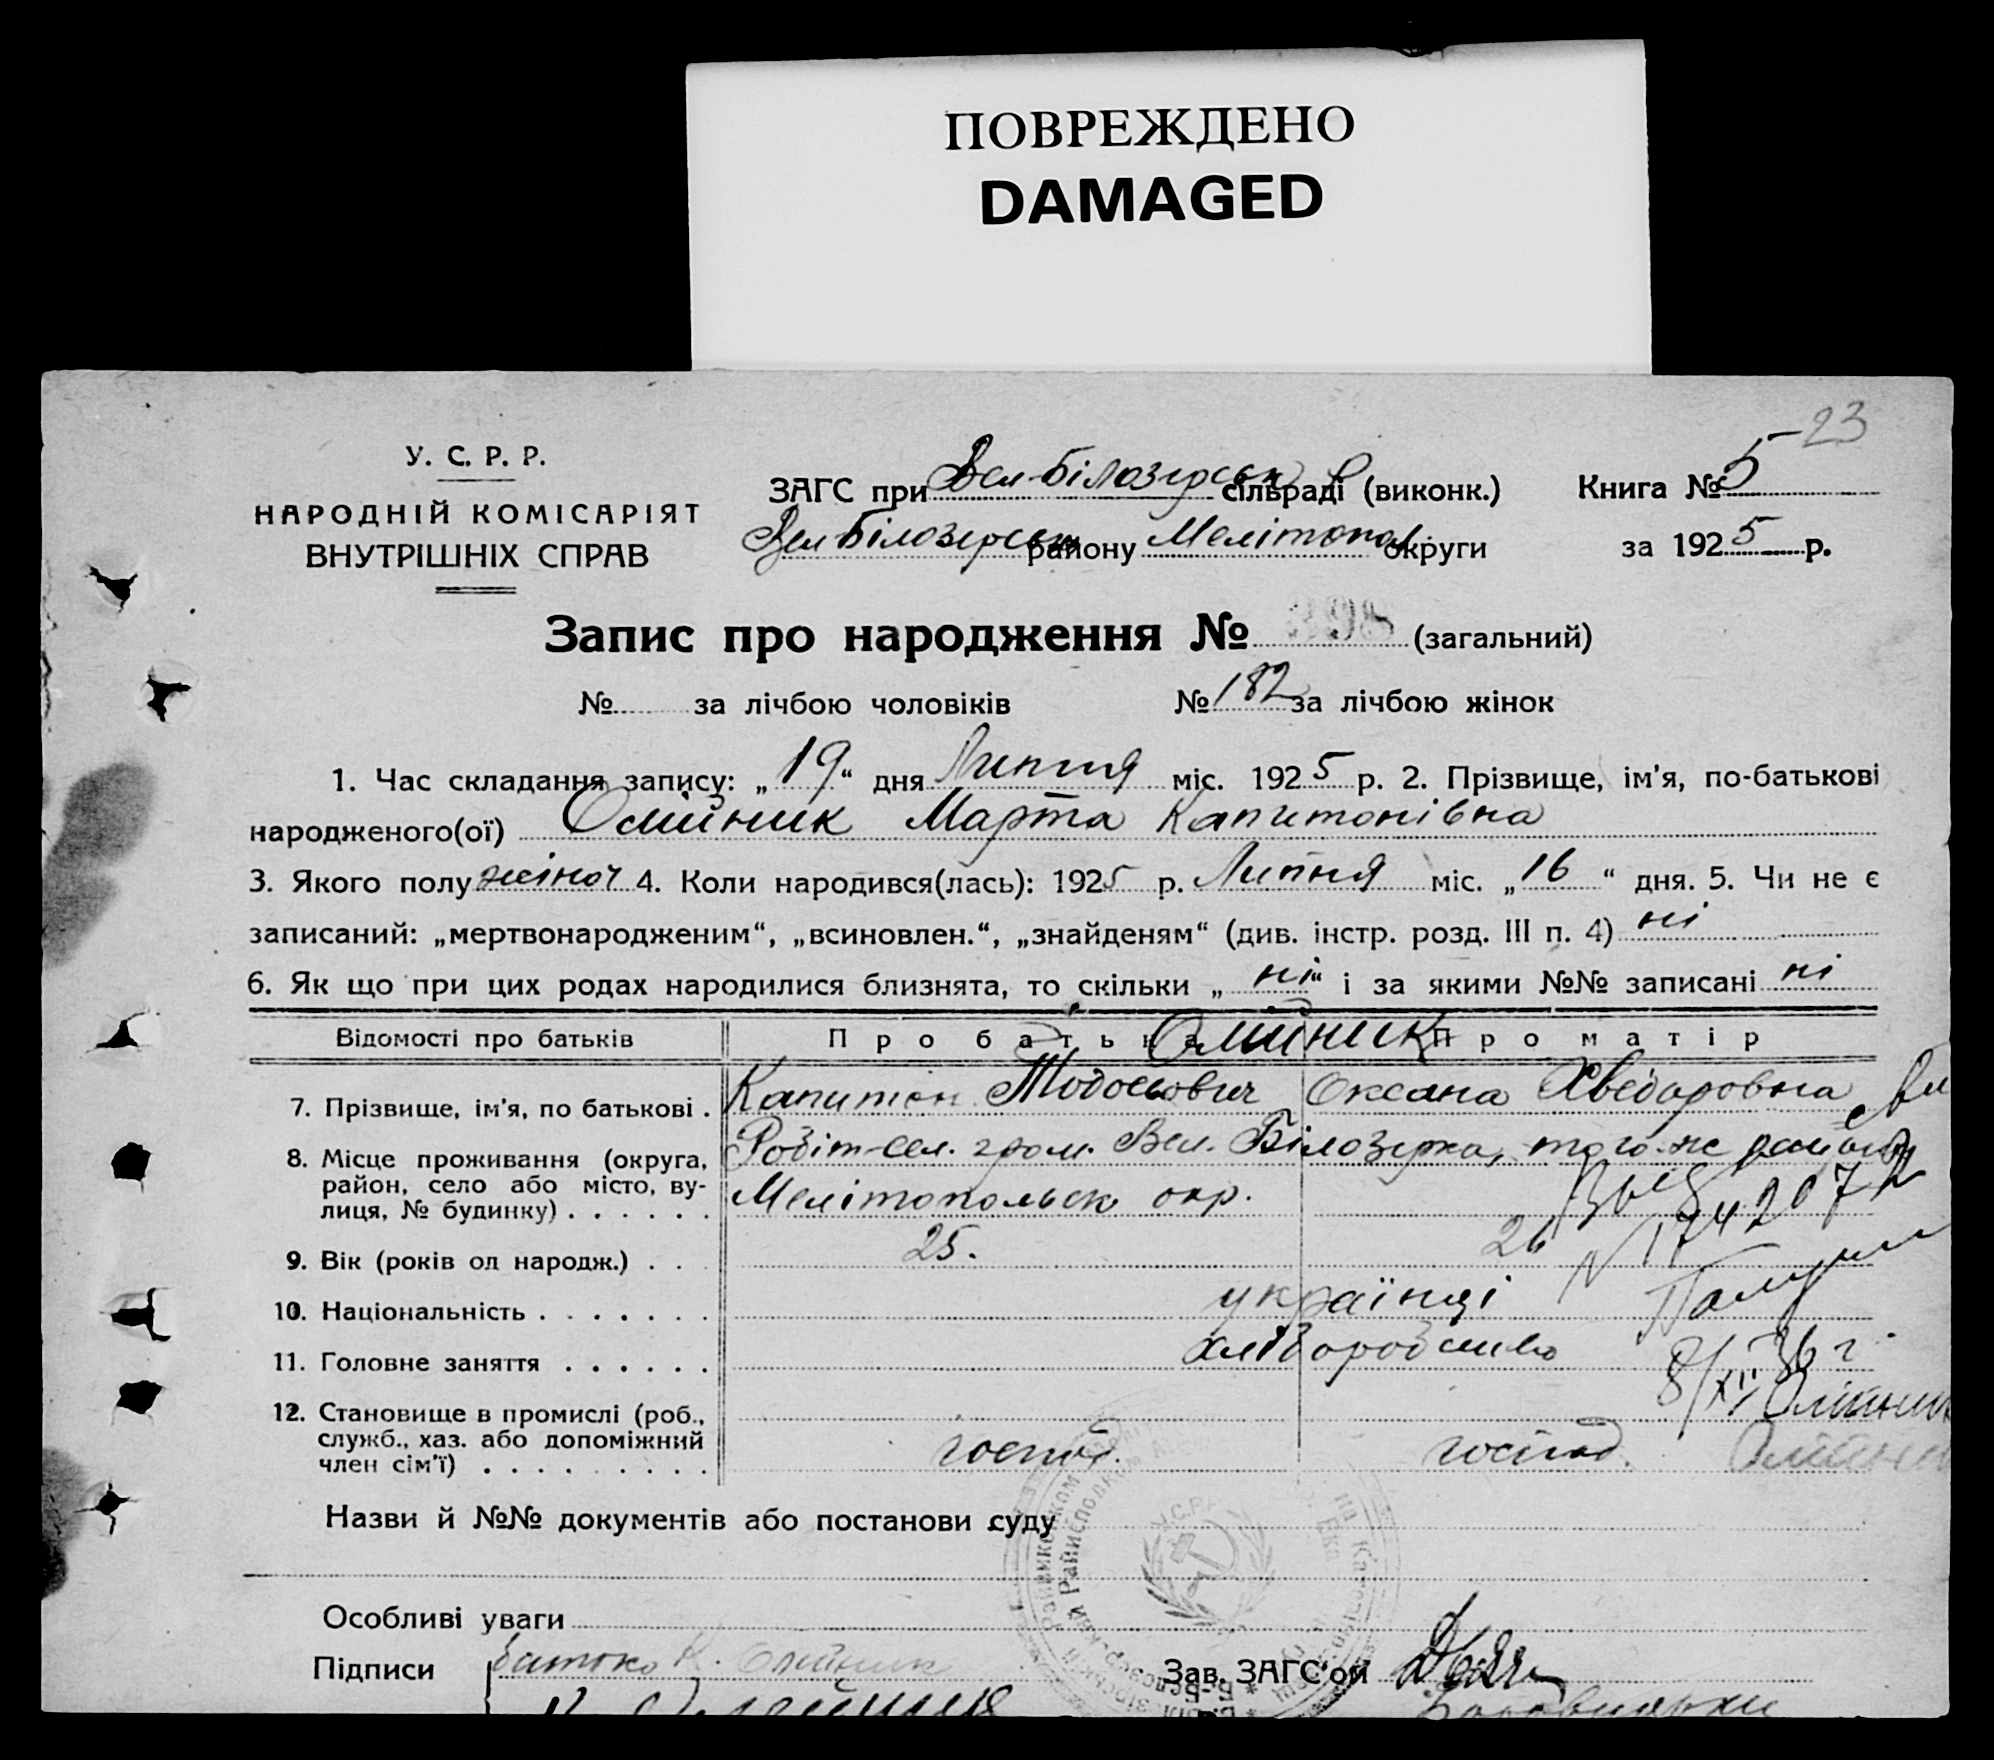 ПОВРЕЖДЕНО
DAMAGED
23
У. С. Р. Р.
НАРОДНІЙ КОМІСАРІЯТ
ВНУТРІШНІХ СПРАВ
ЗАГС при Вел-Білозерськ сільраді (виконк.) Книга № 5
Вел Білозерськ району Мелітопол. округи за 1925 р.
Запис про народження № 398 (загальний)
№ за лічбою чоловіків № 182 за лічбою жінок
1. Час складання запису: „ 19 “ дня Липня міс. 1925 р. 2. Прізвище, ім'я, по-батькові
народженого(ої) Олійник Марта Капитонівна
3. Якого полу жіноч 4. Коли народився(лась): 1925 р. Липня міс. „ 16 “ дня. 5. Чи не є
записаний: „мертвонародженим“, „всиновлен.“, „знайденям“ (див. інстр. розд. III п. 4) ні
6. Як що при цих родах народилися близнята, то скільки „ ні “ і за якими №№ записані ні
Відомості про батьків Про батька Про матір
Олійник
7. Прізвище, ім'я, по батькові . Капитон Тодосьович Оксана Хведоровна
8. Місце проживання (округа, район, село або місто, вулиця, № будинку) . . . . . . Робіт-сел. гром. Вел. Білозерка, того-же району
Мелітопольск окр.
№ 1742072
9. Вік (років од народж.) . . . 25. 26
10. Національність . . . . . . . українці
11. Головне заняття . . . . . . хліборобство
8/XII 36 г.
Олійник
12. Становище в промислі (роб., служб., хаз. або допоміжний член сім'ї) . . . . . . . . . господ. господ.
Назви й №№ документів або постанови суду
Особливі уваги
Підписи батько К. Олійник Зав. ЗАГС'ом